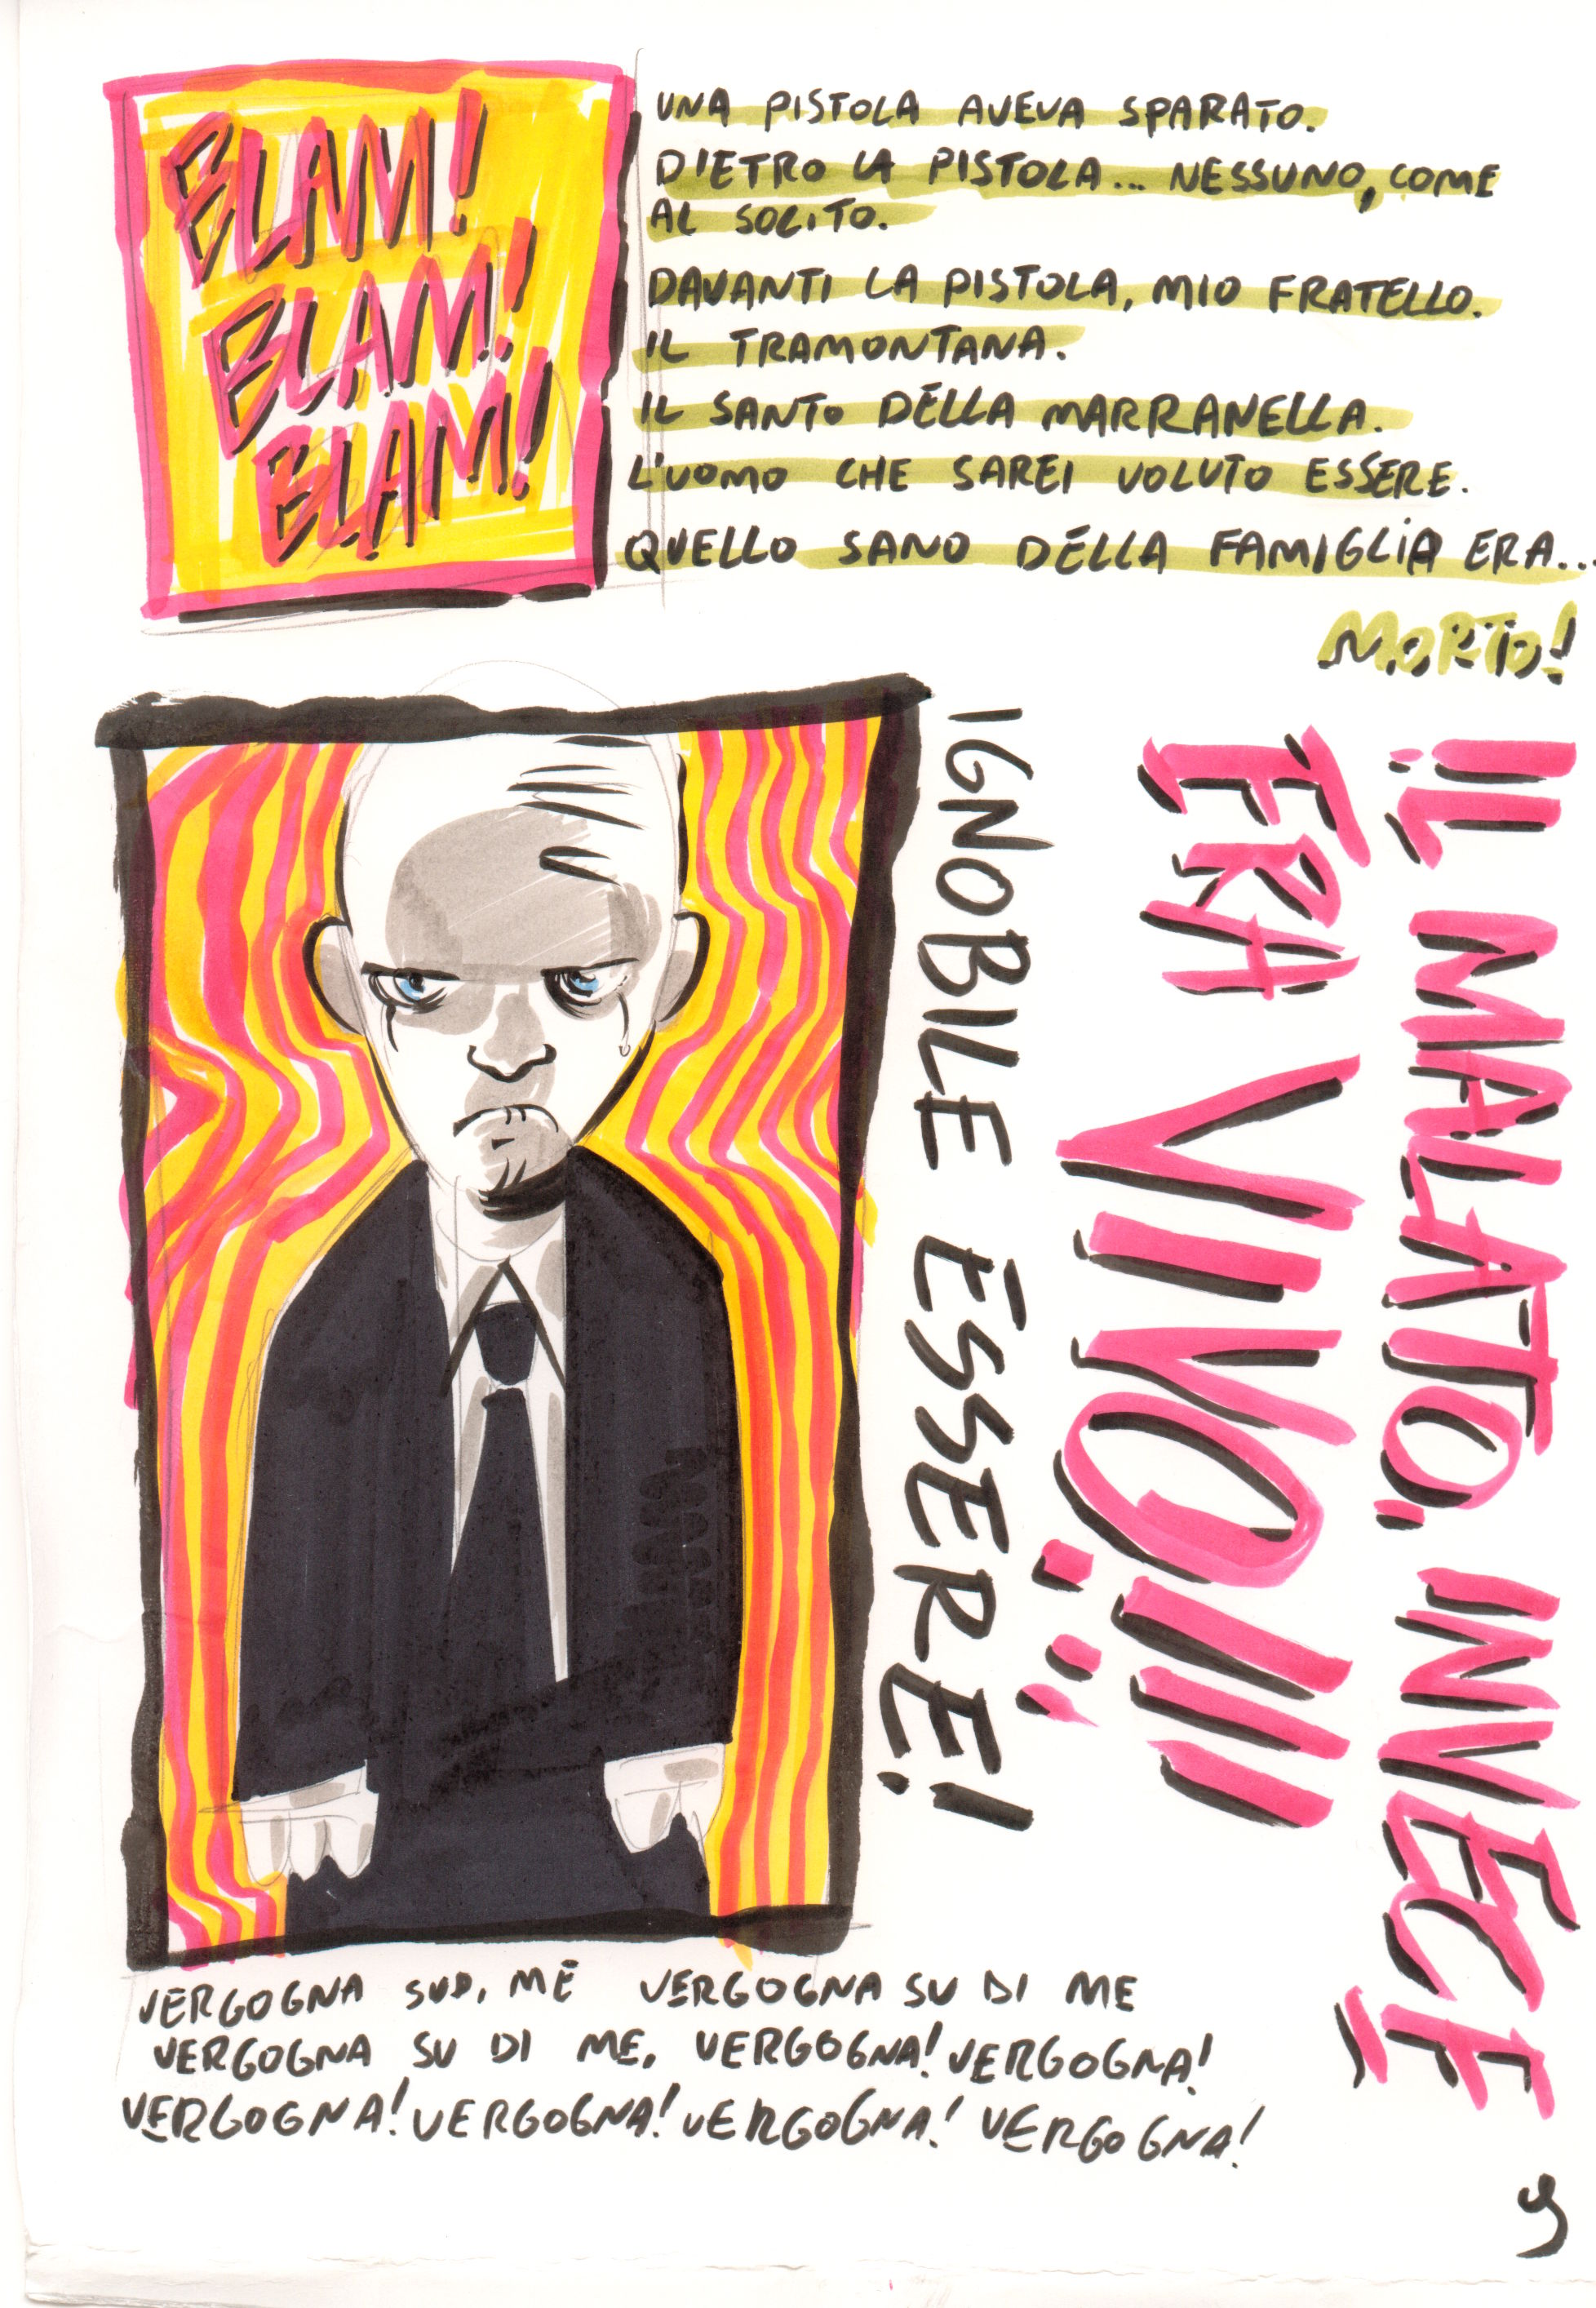 BLAM!
BLAM!
BLAM!
UNA PISTOLA AVEVA SPARATO.
DIETRO LA PISTOLA... NESSUNO, COME
AL SOLITO.
DAVANTI LA PISTOLA, MIO FRATELLO.
IL TRAMONTANA.
IL SANTO DELLA MARRANELLA.
L'UOMO CHE SAREI VOLUTO ESSERE.
QUELLO SANO DELLA FAMIGLIA ERA...
MORTO!
IL MALATO, INVECE
ERA VIVO!!!
IGNOBILE ESSERE!
VERGOGNA SU DI ME VERGOGNA SU DI ME
VERGOGNA SU DI ME, VERGOGNA! VERGOGNA!
VERGOGNA! VERGOGNA! VERGOGNA! VERGOGNA!